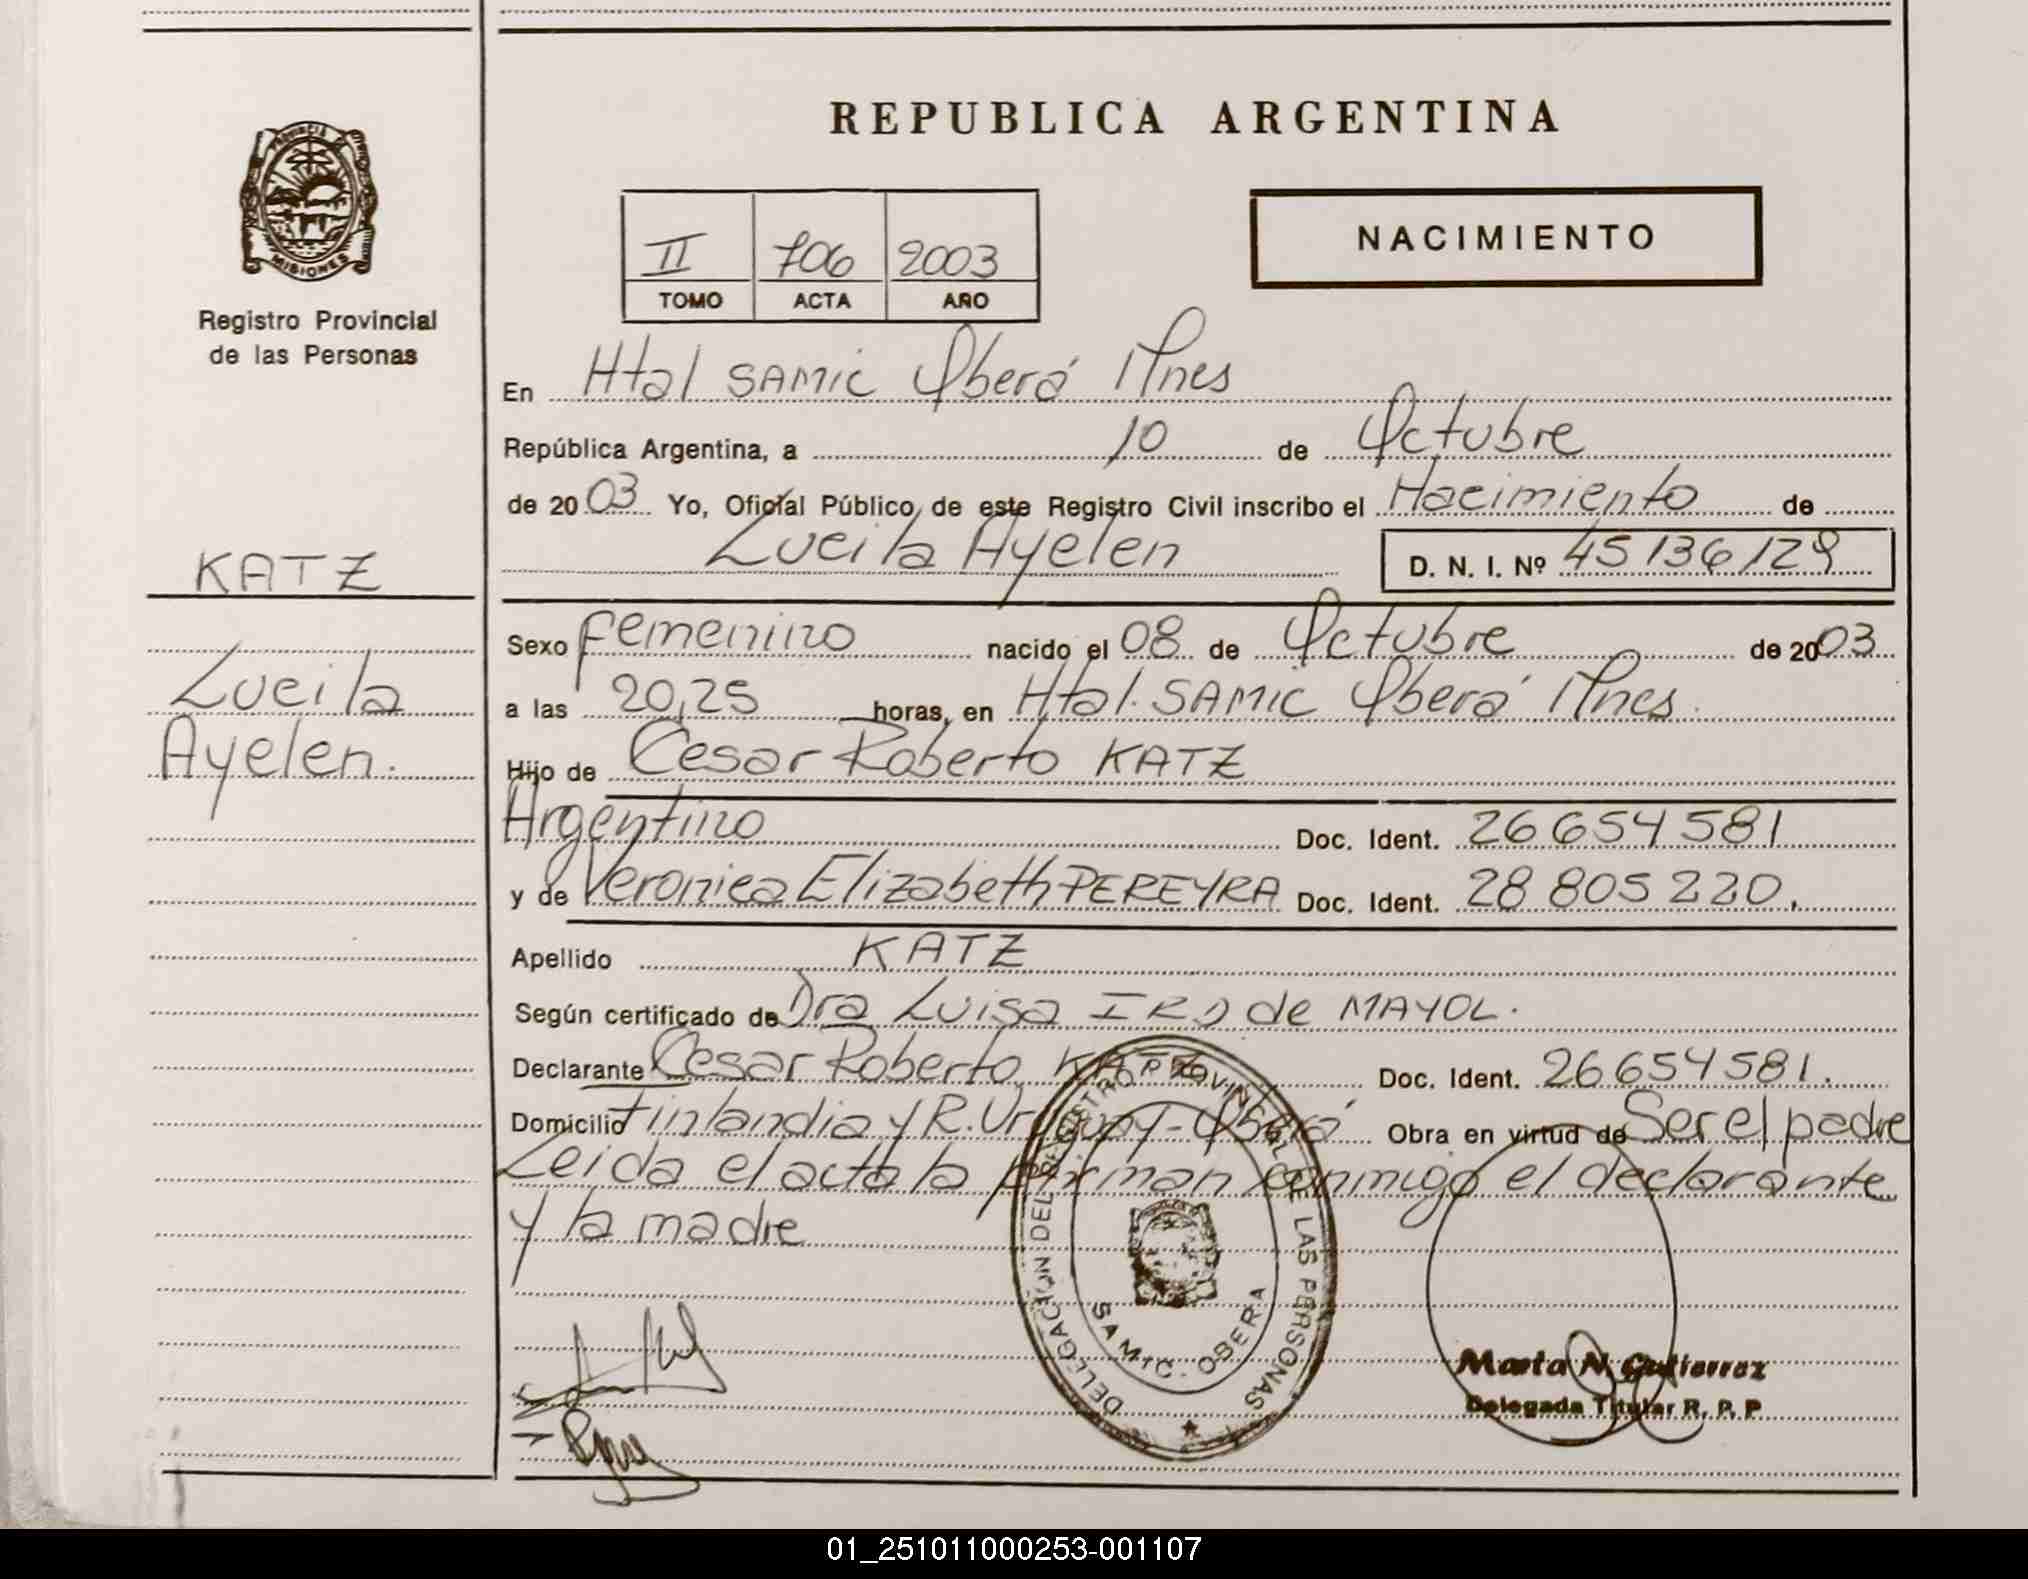 REPUBLICA ARGENTINA
PROVINCIA DE
MISIONES
Registro Provincial
de las Personas
II 706 2003
TOMO ACTA AÑO
NACIMIENTO
En Htal SAMIC Oberá Mnes
República Argentina, a 10 de Octubre
de 2003 Yo, Oficial Público, de este Registro Civil inscribo el Nacimiento de
Lucila Ayelen D. N. I. Nº 45136129
KATZ
Lucila
Ayelen.
Sexo femenino nacido el 08 de Octubre de 2003
a las 20,25 horas, en Htal. SAMIC Oberá Mnes.
Hijo de Cesar Roberto KATZ
Argentino Doc. Ident. 26654581
y de Veronica Elizabeth PEREYRA Doc. Ident. 28 805 220.
Apellido KATZ
Según certificado de Dra Luisa de MAYOL.
Declarante Cesar Roberto KATZ Doc. Ident. 26654581.
Domicilio Finlandia y R. Uruguay - Oberá Obra en virtud de Ser el padre
Leida el acta la firman conmigo el declarante
y la madre
DELEGACION DEL REGISTRO PROVINCIAL DE LAS PERSONAS
SAMIC. OBERA
Marta N. Gutierrez
Delegada Titular R. P. P
01_251011000253-001107